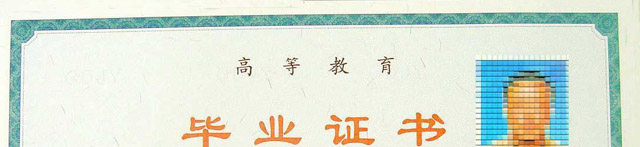 高等教育
毕业证书